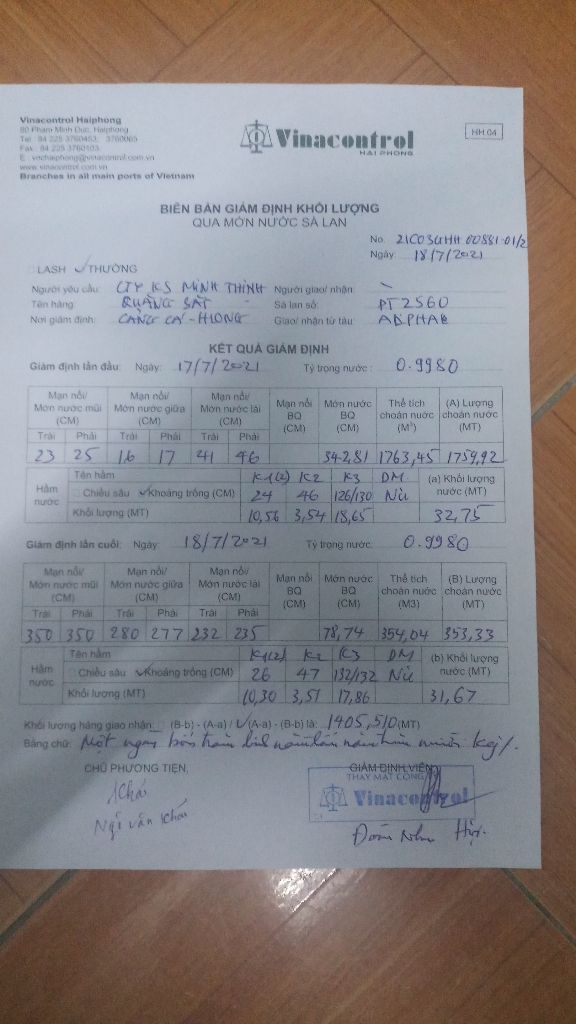 Vinacontrol Haiphong
80 Pham Minh Duc, Haiphong
Tel: 84 225 3760453; 3765065
Fax: 84 225 3760103
E: vnchaiphong@vinacontrol.com.vn
www.vinacontrol.com.vn
Branches in all main ports of Vietnam
Vinacontrol
HAI PHONG
NH 04
BIÊN BẢN GIÁM ĐỊNH KHỐI LƯỢNG
QUA MỚN NƯỚC SÀ LAN
No. 21C03GHH 00881-01/2
Ngày: 18/7/2021
LASH ✓ THƯỜNG
Người yêu cầu: CTY KS MINH THỊNH Người giao/ nhận:
Tên hàng: QUẶNG SẮT Sà lan số: PT 2560
Nơi giám định: Giao/ nhận từ tàu:
KẾT QUẢ GIÁM ĐỊNH
Giám định lần đầu: Ngày: 17/7/2021 Tỷ trọng nước: 0.9980
Mạn nổi/ Mớn nước mũi (CM) Mạn nổi/ Mớn nước giữa (CM) Mạn nổi/ Mớn nước lái (CM) Mạn nổi BQ (CM) Mớn nước BQ (CM) Thể tích choán nước (M³) (A) Lượng choán nước (MT)
Trái Phải Trái Phải Trái Phải
23 25 16 17 41 46 342,81 1763,45 1759,92
Hầm nước Tên hầm K1(2) K2 K3 DM (a) Khối lượng nước (MT)
Chiều sâu ✓ Khoảng trống (CM) 24 46 126/130
Khối lượng (MT) 10,56 3,54 18,65 32,75
Giám định lần cuối: Ngày: 18/7/2021 Tỷ trọng nước: 0.9980
Mạn nổi/ Mớn nước mũi (CM) Mạn nổi/ Mớn nước giữa (CM) Mạn nổi/ Mớn nước lái (CM) Mạn nổi BQ (CM) Mớn nước BQ (CM) Thể tích choán nước (M3) (B) Lượng choán nước (MT)
Trái Phải Trái Phải Trái Phải
350 350 280 277 232 235 78,74 354,04 353,33
Hầm nước Tên hầm K1(2) K2 K3 DM (b) Khối lượng nước (MT)
Chiều sâu ✓ Khoảng trống (CM) 26 47 132/132
Khối lượng (MT) 10,30 3,51 17,86 31,67
Khối lượng hàng giao nhận: (B-b) - (A-a) / ✓ (A-a) - (B-b) là: 1405,510 (MT)
Bằng chữ: Một ngàn bốn trăm năm trăm mười kg/.
CHỦ PHƯƠNG TIỆN, GIÁM ĐỊNH VIÊN
THAY MẶT CÔNG
Khá
Vinacontrol
Ngô văn Khá
Đoàn Như